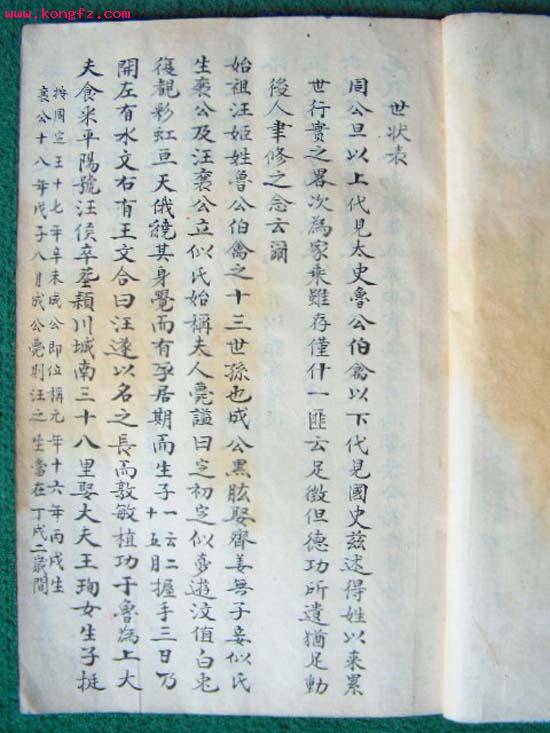 www.kongfz.com
世状表
周公旦以上代見太史魯公伯禽以下代見國史兹述得姓以来累
世行實之畧次為家乗雖存僅什一匪云足徴但德功所遺猶足動
後人聿修之念云爾
始祖汪姬姓魯公伯禽之十三世孫也成公黑肱娶齊姜無子妾似氏
生襄公及汪襄公立似氏始稱夫人薨謚曰定初定似夢遊汶值白兎
復觀彩虹亘天俄繞其身覺而有孕居期而生子一云二十五月握手三日乃
開左有水文右有王文合曰汪遂以名之長而敦敏植功于魯為上大
夫食采平陽號汪侯卒塟頴川城南三十八里娶大夫王珣女生子挺
按周定王十七年辛未成公即位稱元年十六年丙戌生
襄公十八年戊子八月成公薨則汪之生當在丁戌二歳間